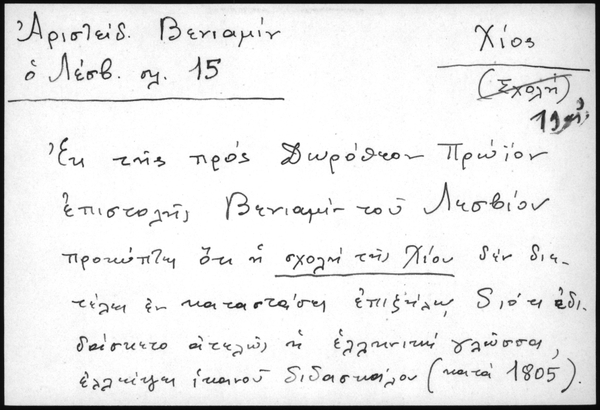 Ἀριστείδ. Βενιαμίν
ὁ Λέσβ. σλ. 15
Χίος
(Σχολή)
Ἐκ τῆς πρός Δωρόθεον Πρώϊον
ἐπιστολῆς Βενιαμίν τοῦ Λεσβίου
προκύπτει ὅτι ἡ σχολή τῆς Χίου δέν διε-
τέλει ἐν καταστάσει ἐπιζήλῳ, διότι ἐδι-
δάσκετο ἀτελῶς ἡ ἑλληνική γλῶσσα,
ἐλλείψει ἱκανοῦ διδασκάλου (κατά 1805).